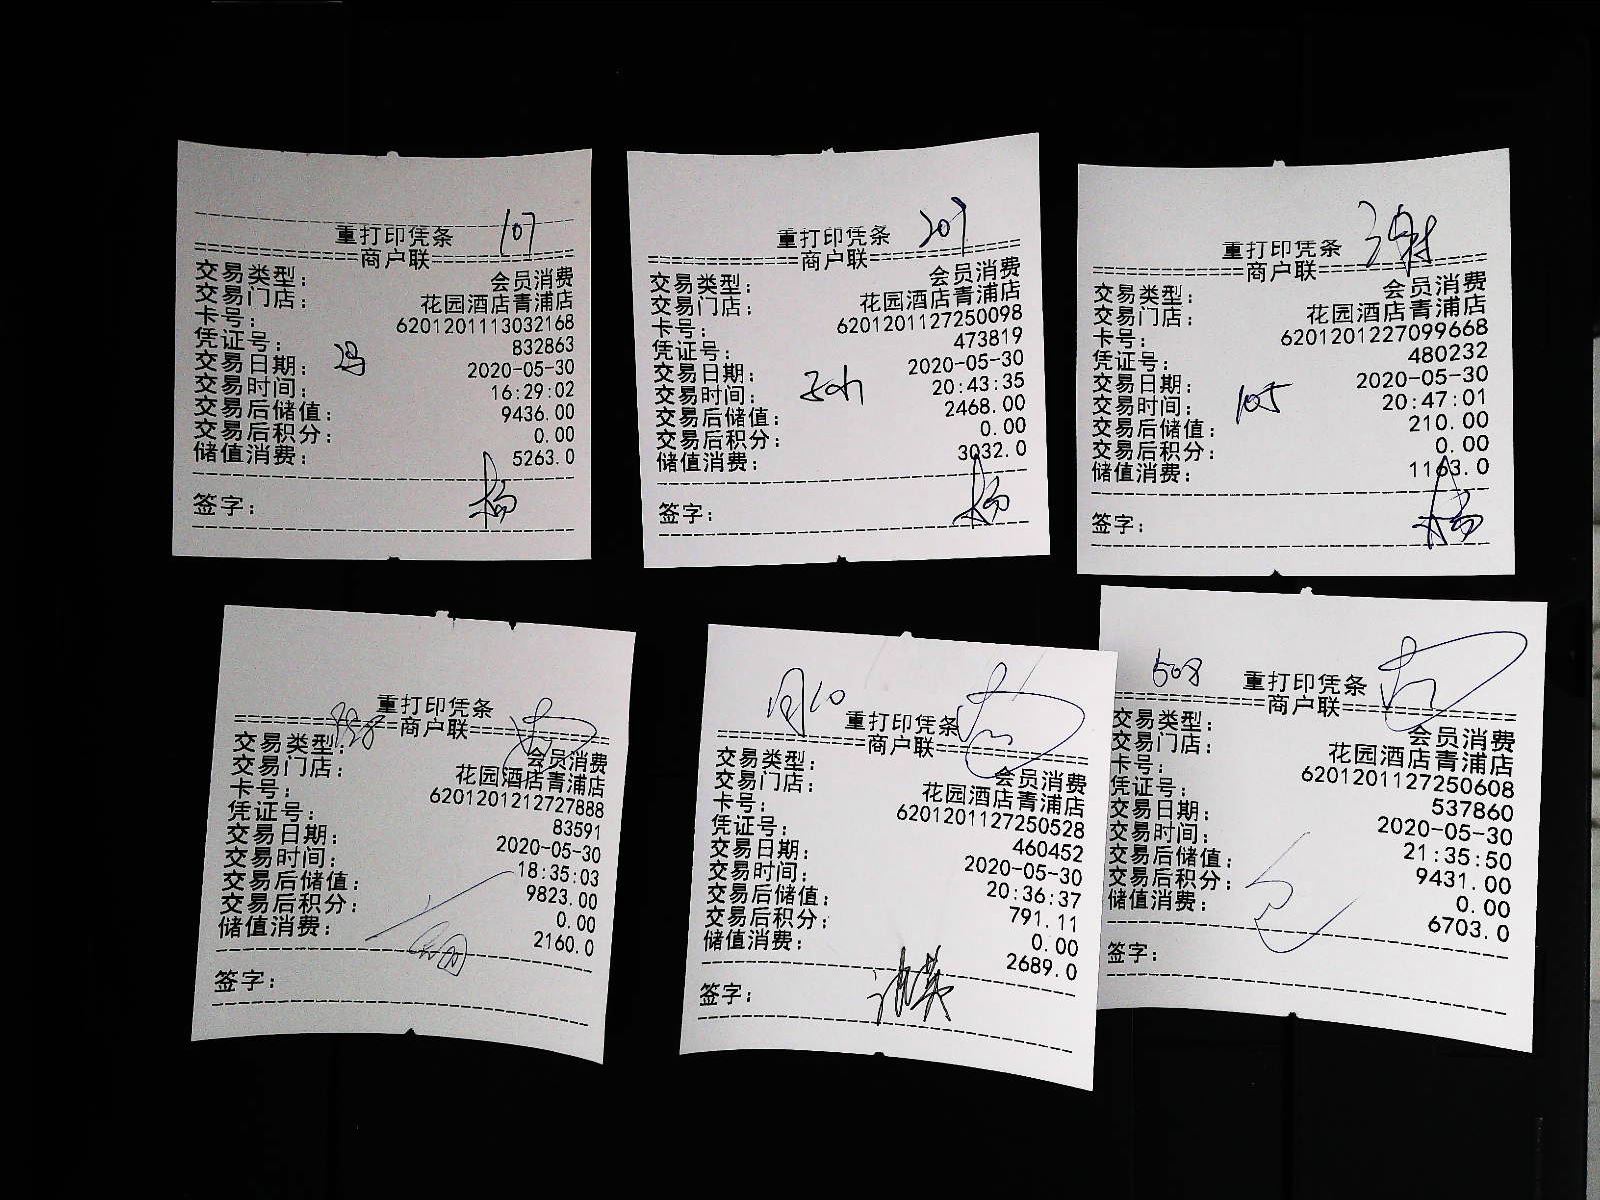 107
重打印凭条
==========商户联==========
交易类型: 会员消费
交易门店: 花园酒店青浦店
卡号: 6201201113032168
凭证号: 832863
交易日期: 2020-05-30
冯
交易时间: 16:29:02
交易后储值: 9436.00
交易后积分: 0.00
储值消费: 5263.0
签字:
杨
207
重打印凭条
==========商户联==========
交易类型: 会员消费
交易门店: 花园酒店青浦店
卡号: 6201201127250098
凭证号: 473819
交易日期: 2020-05-30
交易时间: 20:43:35
交易后储值: 2468.00
交易后积分: 0.00
储值消费: 3032.0
签字:
杨
重打印凭条
==========商户联==========
交易类型: 会员消费
交易门店: 花园酒店青浦店
卡号: 6201201227099668
凭证号: 480232
交易日期: 2020-05-30
交易时间: 20:47:01
105
交易后储值: 210.00
交易后积分: 0.00
储值消费: 1163.0
签字:
杨
重打印凭条
==========商户联==========
交易类型: 会员消费
交易门店: 花园酒店青浦店
卡号: 6201201212727888
凭证号: 83591
交易日期: 2020-05-30
交易时间: 18:35:03
交易后储值: 9823.00
交易后积分: 0.00
储值消费: 2160.0
签字:
重打印凭条
==========商户联==========
交易类型: 会员消费
交易门店: 花园酒店青浦店
卡号: 6201201127250528
凭证号: 460452
交易日期: 2020-05-30
交易时间: 20:36:37
交易后储值: 791.11
交易后积分: 0.00
储值消费: 2689.0
签字:
608
重打印凭条
==========商户联==========
交易类型: 会员消费
交易门店: 花园酒店青浦店
卡号: 6201201127250608
凭证号: 537860
交易日期: 2020-05-30
交易时间: 21:35:50
交易后储值: 9431.00
交易后积分: 0.00
储值消费: 6703.0
签字: